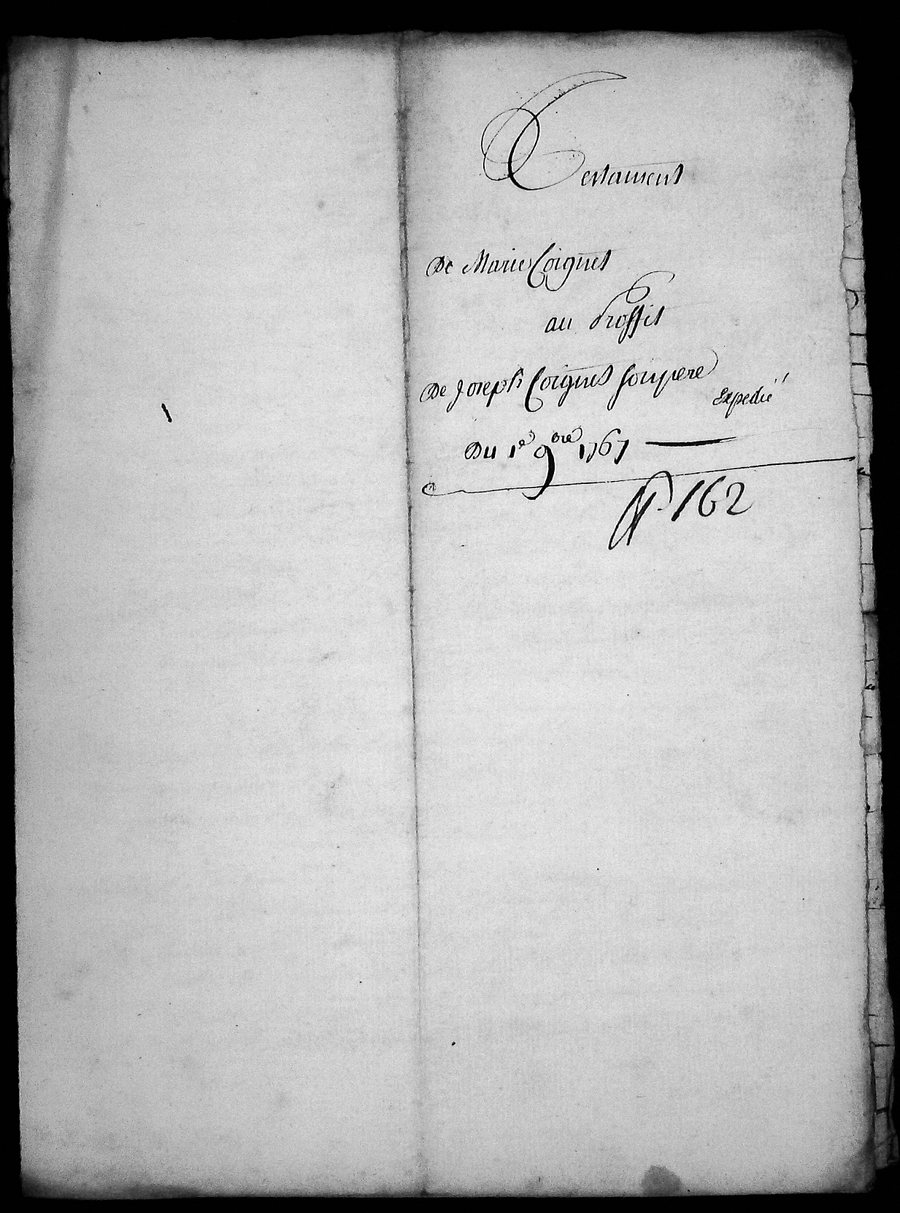 Testament
De Marie Coignet
au Proffit
De Joseph Coignet son pere
Expedié
Du 1e 9bre 1767
N. 162